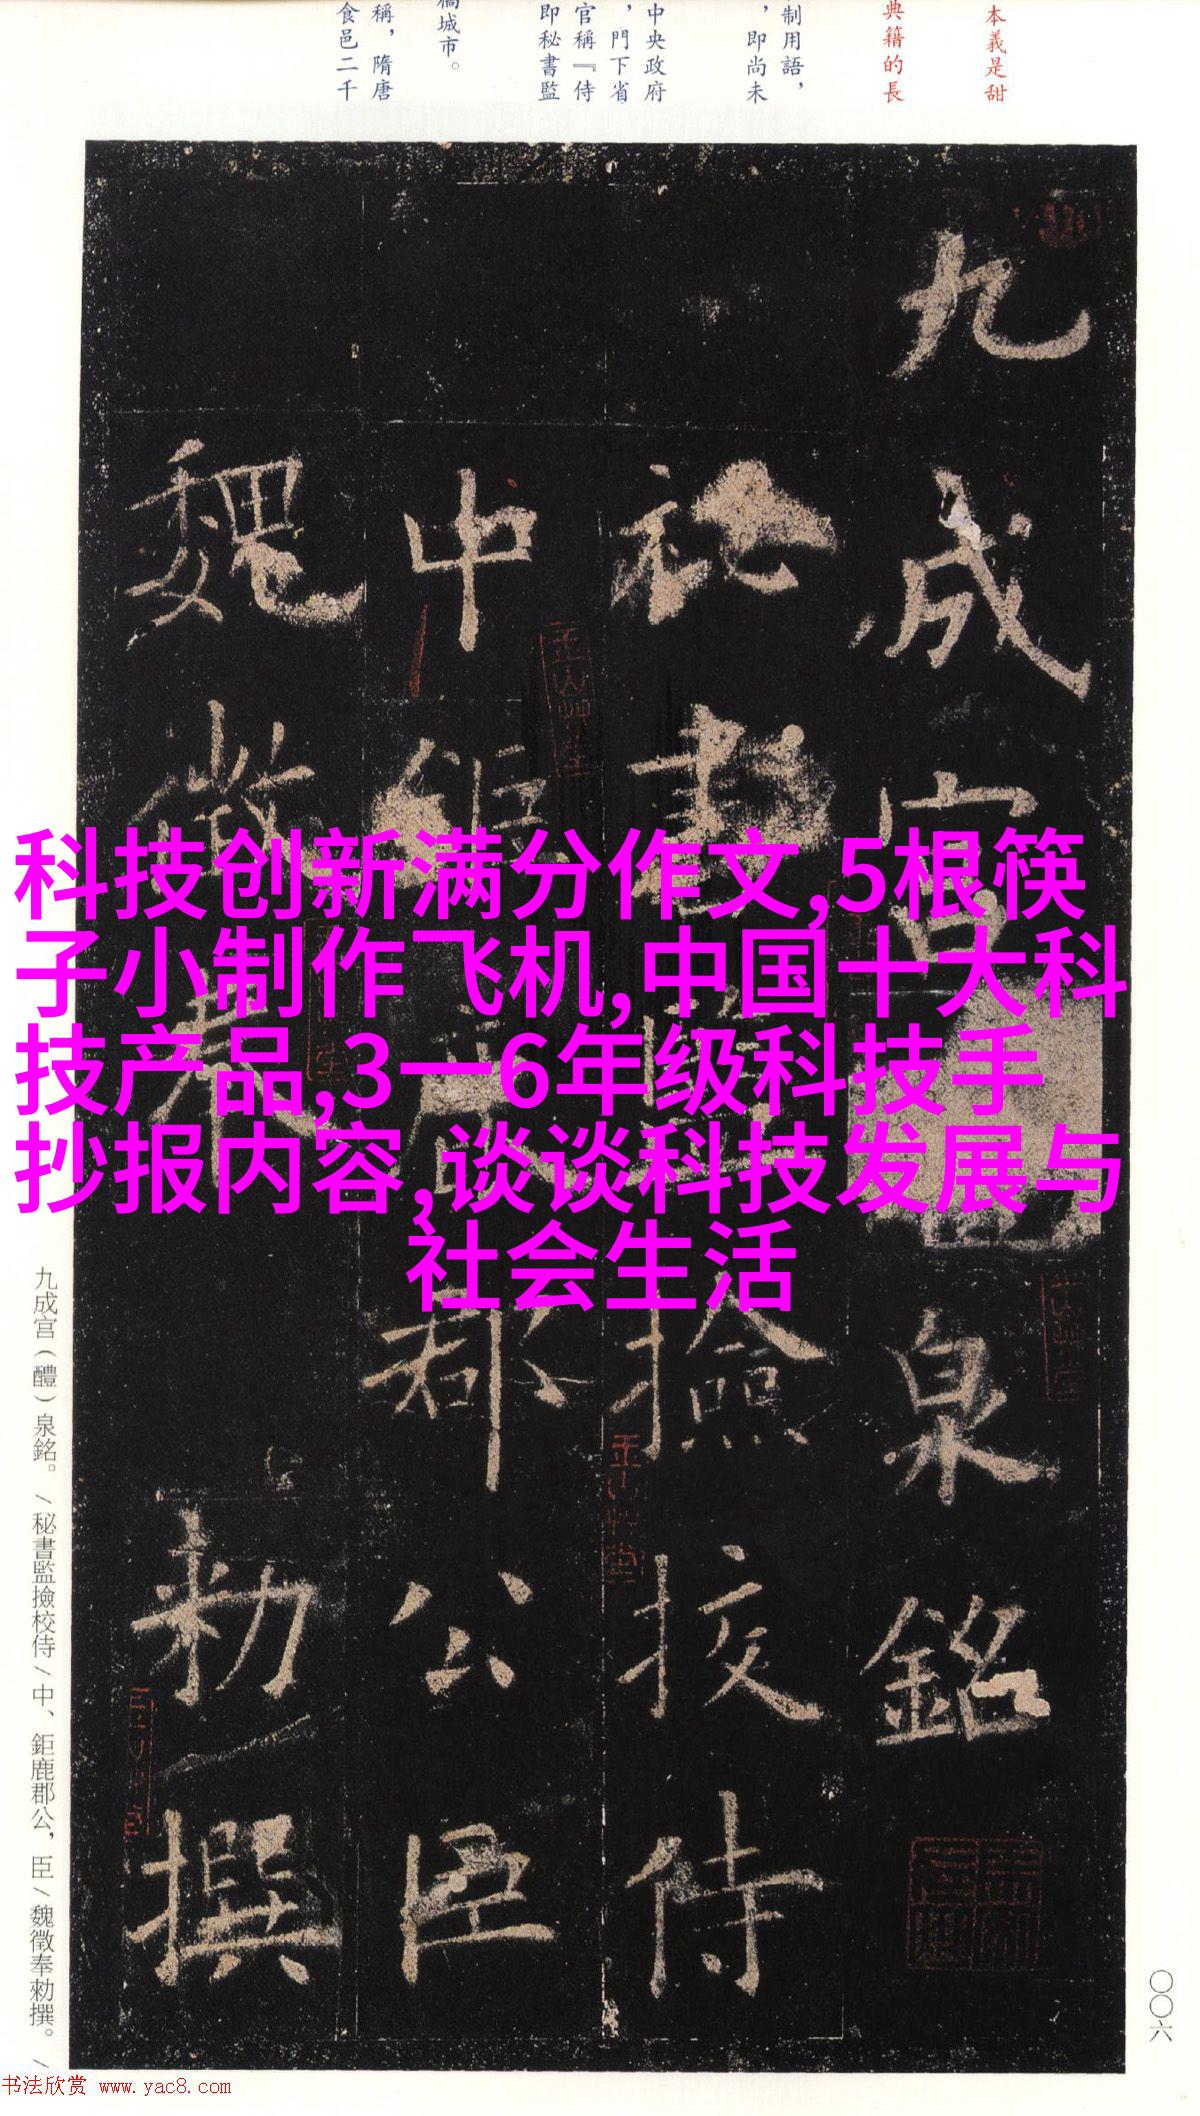 本義是甜
典籍的長
制用語，
，即尚未
中央政府
，門下省
官稱『侍
即秘書監
城市。
稱，隋唐
食邑二千
九成宮醴泉銘
祕書監撿挍侍
中鉅鹿郡公臣
魏徵奉勑撰
科技创新满分作文,5根筷
子小制作飞机,中国十大科
技产品,3一6年级科技手
抄报内容,谈谈科技发展与
社会生活
九成宮（醴）泉銘。/秘書監撿校侍/中、鉅鹿郡公，臣/魏徵奉勑撰。/
〇〇六
书法欣赏 www.yac8.com